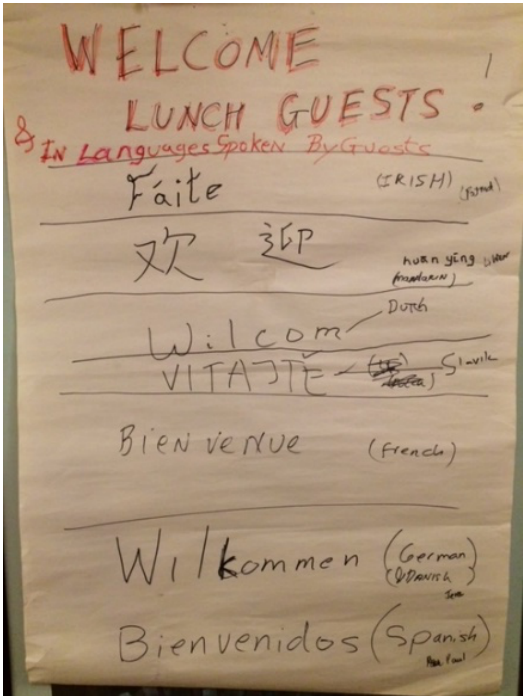 WELCOME
LUNCH GUESTS !
& IN Languages Spoken By Guests
Fáite (IRISH)
欢 迎 huān yíng
(MANDARIN)
Wilcom Dutch
VITAJTĚ Slavik
Bienvenue (French)
Wilkommen (German)
(& DANISH)
Bienvenidos (Spanish)